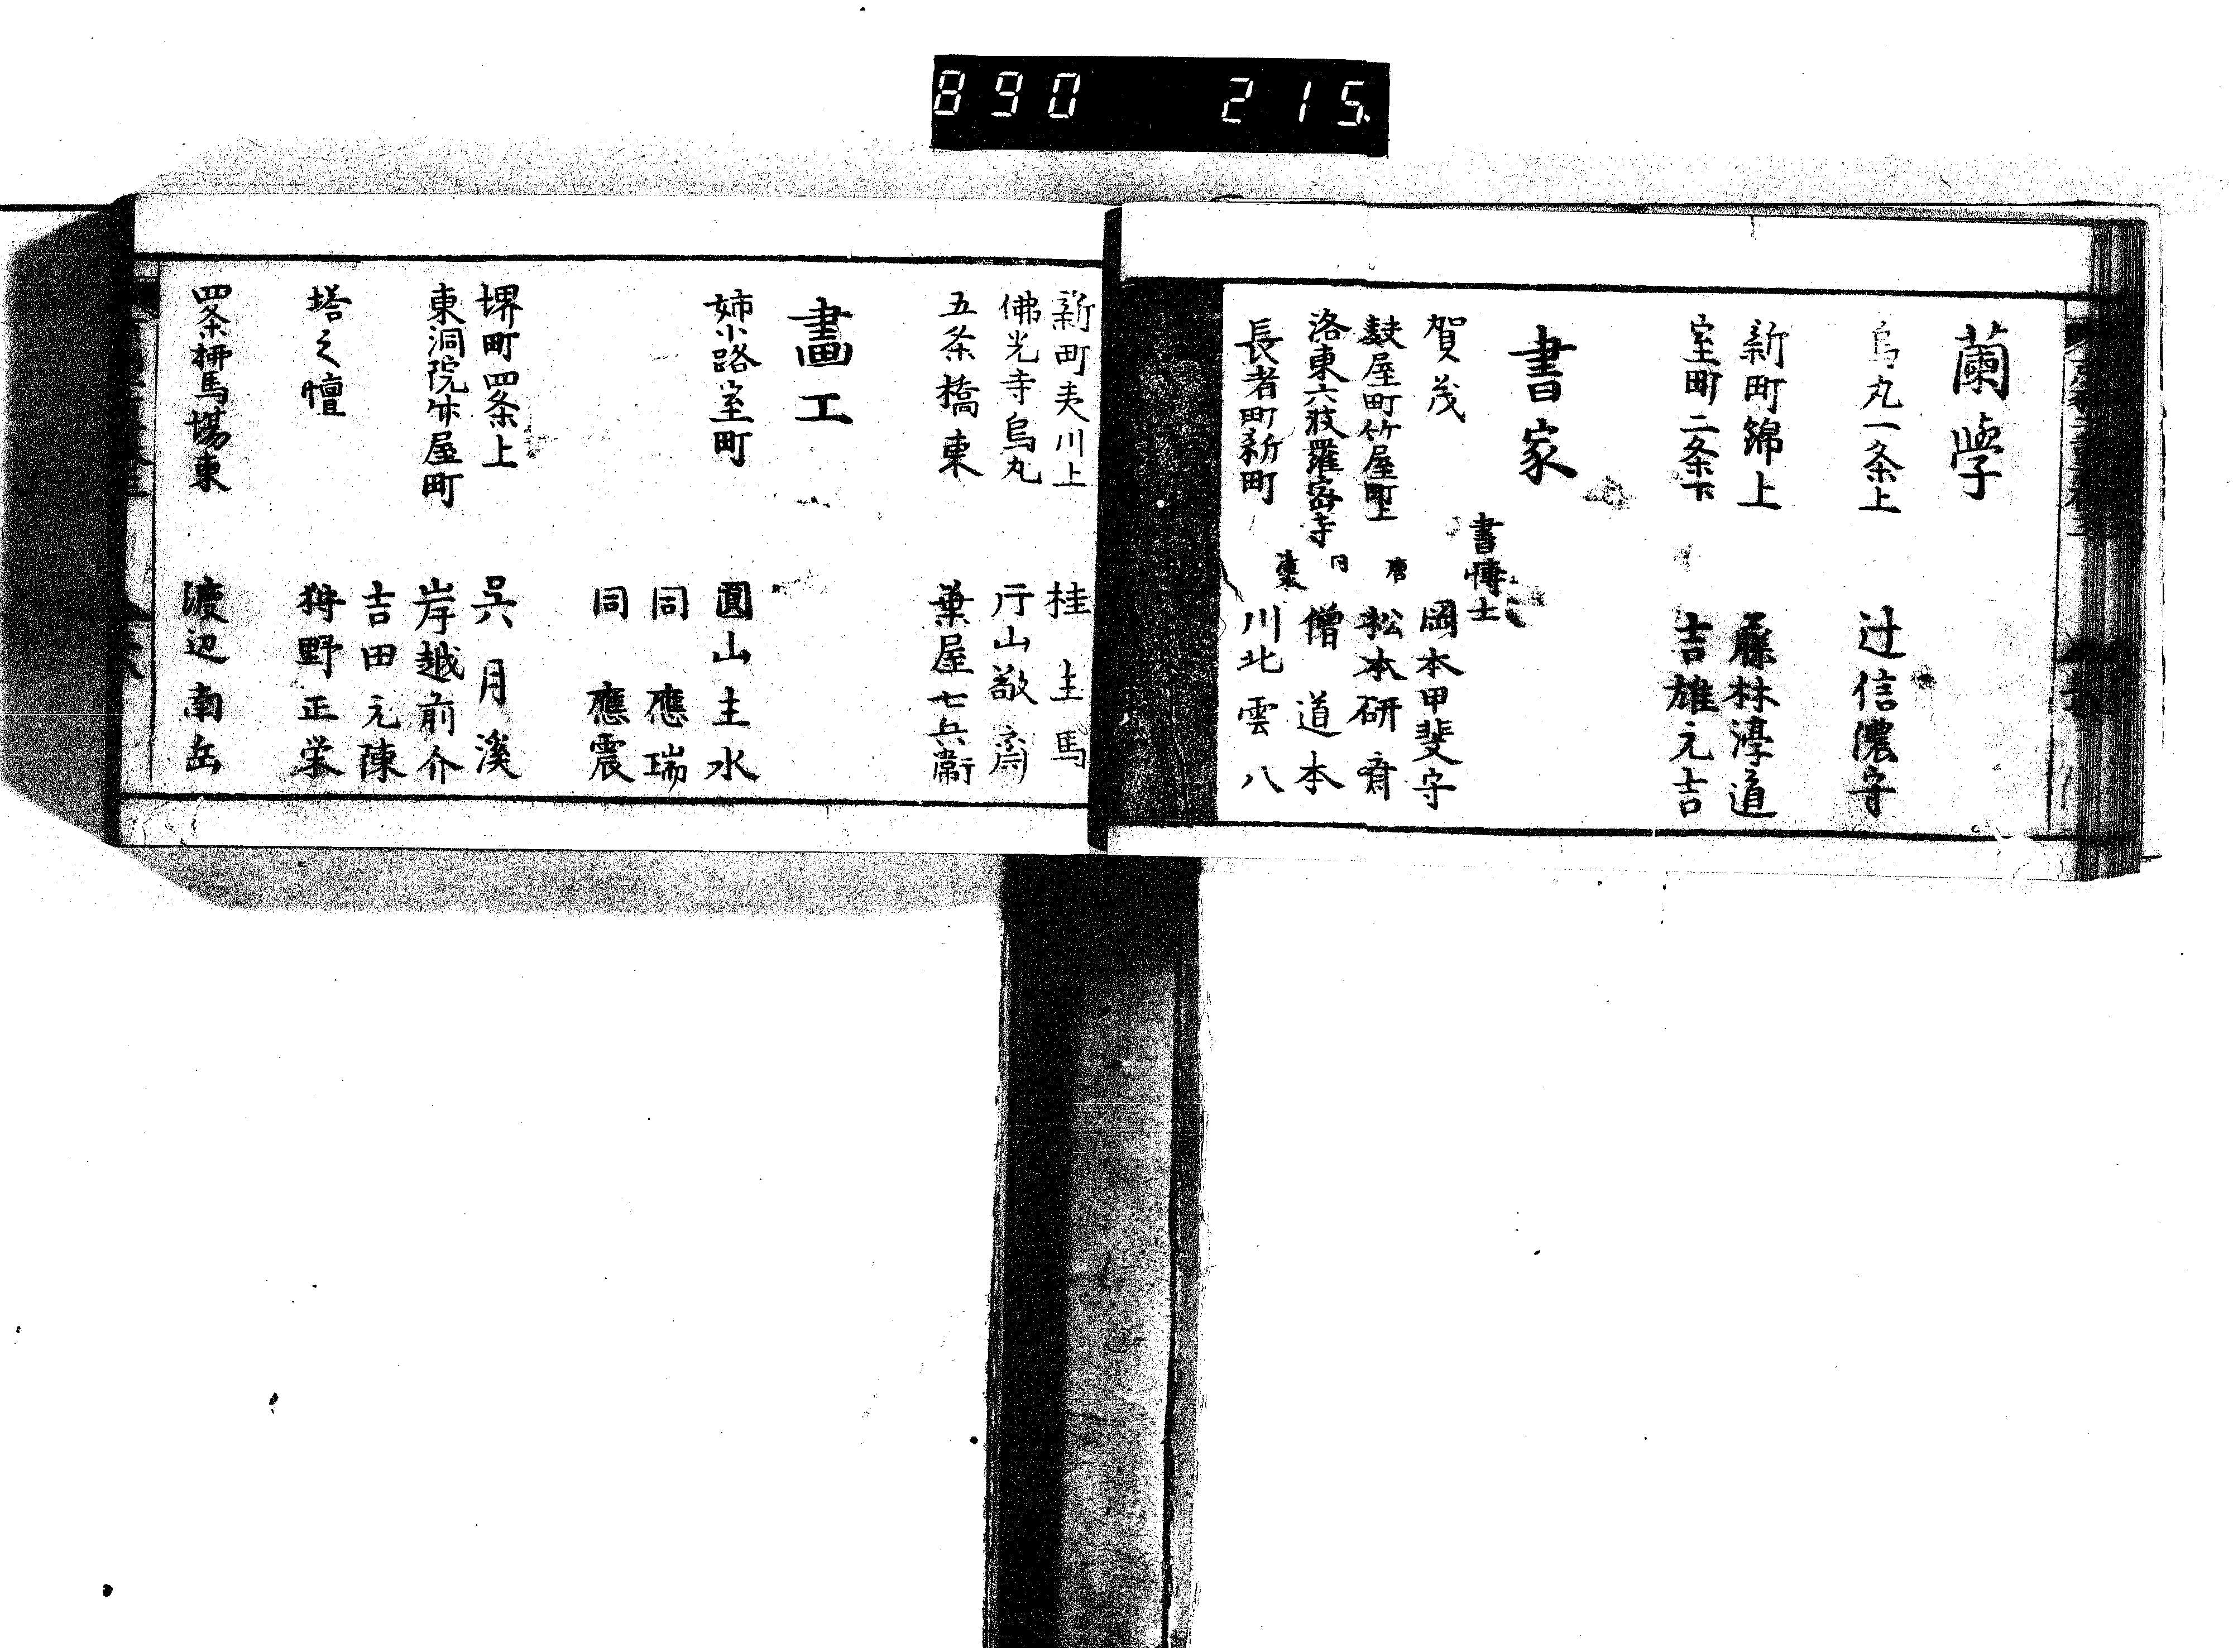 890 215
蘭學
烏丸一条上 辻信濃守
新町錦上 藤林淳道
室町二条下 吉雄元吉
書家
書博士
賀茂 岡本甲斐守
麩屋町竹屋町上 唐 松本研斎
洛東六波羅密寺 同 僧道本
長者町新町 川北雲八
新町夷川上 桂主馬
佛光寺烏丸 片山敬斎
五条橋東 葉屋七兵衛
畫工
姉小路室町 圓山主水
同應瑞
同應震
堺町四条上 呉月溪
東洞院竹屋町 岸越前介
吉田元陳
塔之壇 狩野正栄
四条柳馬場東 渡辺南岳